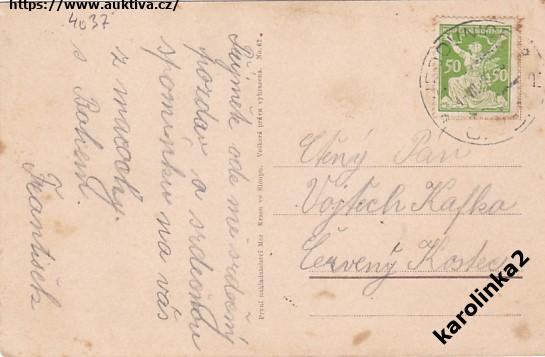 https://www.auktiva.cz/
4037
Přijměte ode mě srdečný
pozdav a srdečnou
spomínku na vás
z macochy.
s Bohem.
František
První nakladatelství Mor. Kras ve Sloupu. Veškerá práva vyhrazena. No. 62
50 50
Ctěný Pan
Vojtěch Kafka
Červený Kostelec
karolinka2